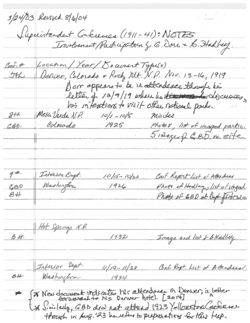 3/24/03 Revised 8/6/04
Superintendent Conferences (1911-41): NOTES
Involvement/Participation by G. Dorr & B. Hadley
Conf.# Location/Year/Document Type(s)
5th Denver, Colorado & Rocky Mt. N.P. Nov. 13-16, 1919
Dorr appears to be in attendance though his
letter of 10/9/19 where he discusses,
his intentions to visit other national parks.
8th Mesa Verde N.P. 10/1-10/5 Minutes
GBD Colorado 1925 Photos, list of
5 images of GBD on site
9th Interior Dept 10/15-10/22 Conf Report list of Attendees
GBD Washington 1926 Photo of Hadley, list of
BH Photo of GBD at
Hot Springs N.P.
BH 1932 Image and list of B. Hadley
Interior Dept 11/19-11/22 Conf. Rpt. List of Attendees
BH Washington 1934
* New document indicates his attendance in Denver is letter
forwarded to his Denver hotel. [2014]
* Similarly, GBD does not attend 1923 Yellowstone Conference
though in Aug. '23 he refers to preparations for this trip.